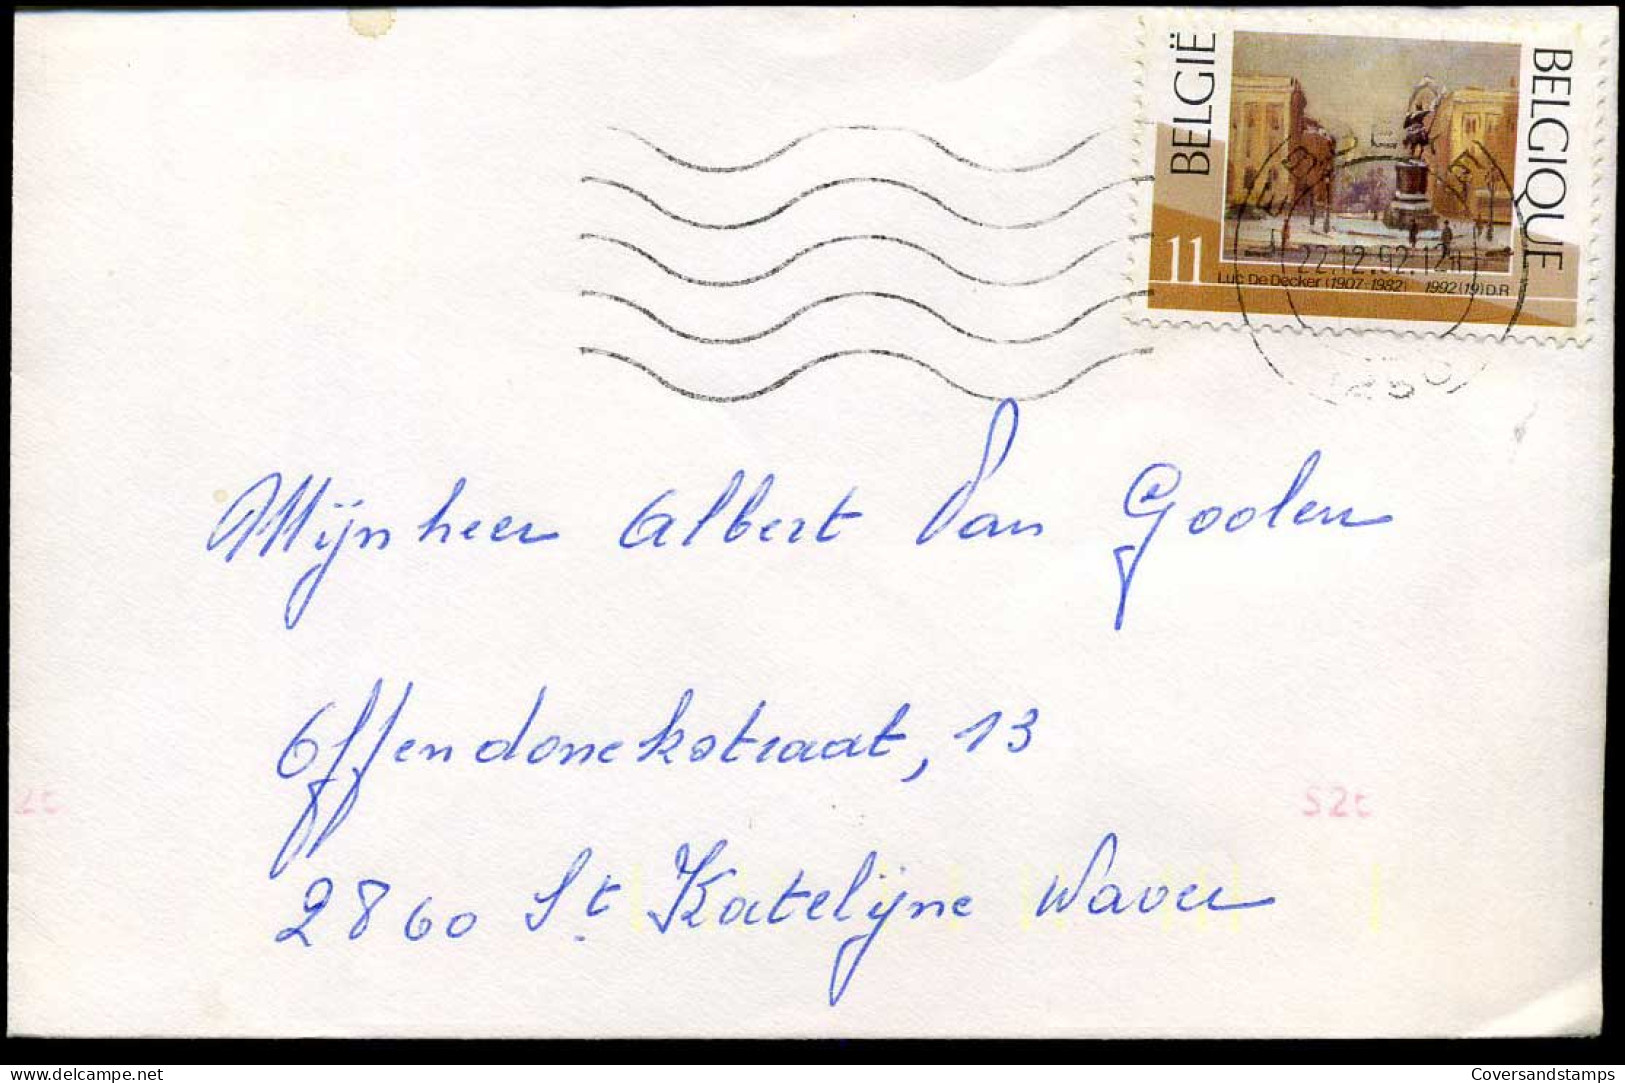 BELGIË
BELGIQUE
11
Luc De Decker (1907-1982) 1992(19)D.R
22.12.92.12
Mijnheer Albert Van Goolen
Offendonckstraat, 13
2t
S2t
2860 St. Katelijne Waver
www.delcampe.net
Coversandstamps